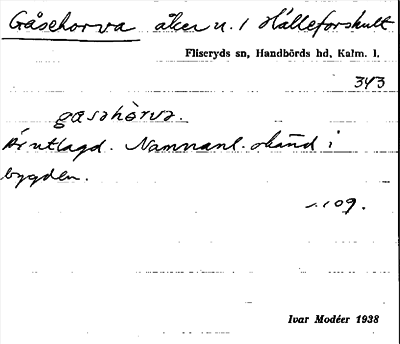 Gåsehorva åker u. 1 Hälleforshult
Fliseryds sn, Handbörds hd, Kalm. l.
343
gasahòrva.
Är utlagd. Namnanl. okänd i
bygden.
109.
Ivar Modéer 1938